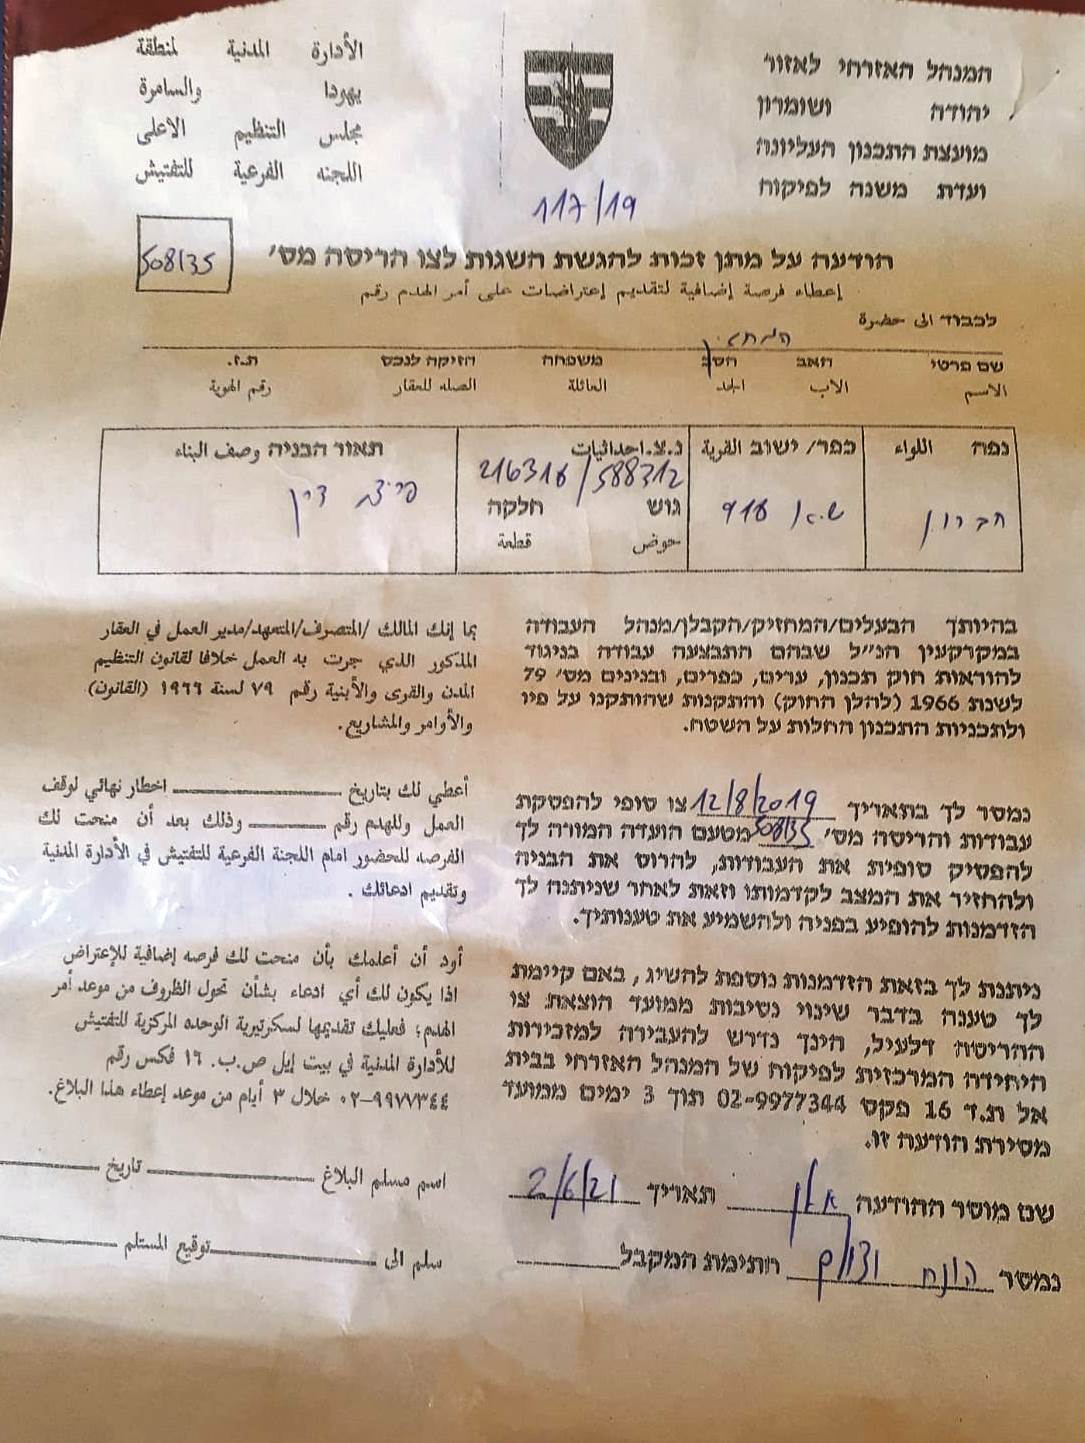 המנהל האזרחי לאזור
יהודה ושומרון
מועצת התכנון העליונה
ועדת משנה לפיקוח
الأدارة المدنية لمنطقة
يهودا والسامرة
مجلس التنظيم الاعلى
اللجنه الفرعية للتفتيش
117/19
הודעה על מתן זכות להגשת השגות לצו הריסה מס׳
508135
إعطاء فرصة إضافية لتقديم إعتراضات على أمر الهدم رقم
לכבוד الى حضرة
המחזיק
שם פרטי האב הסב משפחה הזיקה לנכס ת.ז.
الاسم الاب الجد العائلة الصله للعقار رقم الهوية
נפה اللواء
חברון
כפר/ ישוב القرية
נ.צ.احداثيات
216316/588312
גוש חלקה
حوض قطعة
תאור הבניה وصف البناء
בהיותך הבעלים/המחזיק/הקבלן/מנהל העבודה
במקרקעין הנ״ל שבהם התבצעה עבודה בניגוד
להוראות חוק תכנון, ערים, כפרים, ובנינים מס׳ 79
לשנת 1966 (להלן החוק) והתקנות שהותקנו על פיו
ולתכניות התכנון החלות על השטח.
نما إنك المالك /المتصرف/المتعهد/مدير العمل في العقار
المذكور اللذي جرت به العمل خلافا لقانون التنظيم
المدن والقرى والأبنية رقم ٧٩ لسنة ١٩٦٦ (القانون)
والأوامر والمشاريع.
נמסר לך בתאריך 12/8/2019 צו סופי להפסקת
עבודות והריסה מס׳ 508135 מטעם הועדה המורה לך
להפסיק סופית את העבודות, להרוס את הבניה
ולהחזיר את המצב לקדמותו וזאת לאחר שניתנה לך
הזדמנות להופיע בפניה ולהשמיע את טענותיך.
أعطي لك بتاريخ اخطار نهائي لوقف
العمل وللهدم رقم وذلك بعد أن منحت لك
الفرصه للحضور امام اللجنة الفرعية للتفتيش في الأدارة المدنية
وتقديم ادعائك .
ניתנת לך בזאת הזדמנות נוספת להשיג , באם קיימת
לך טענה בדבר שינוי נסיבות ממועד הוצאת צו
ההריסה דלעיל, הינך נדרש להעבירה למזכירות
היחידה המרכזית לפיקוח של המנהל האזרחי בבית
אל ת.ד 16 פקס 02-9977344 תוך 3 ימים ממועד
מסירת הודעה זו.
أود أن أعلمك بأن منحت لك فرصه إضافية للإعتراض
اذا يكون لك أي ادعاء بشأن تحول الظروف من موعد أمر
الهدم؛ فعليك تقديمها لسكرتيرية الوحده المركزية للتفتيش
للأدارة المدنية في بيت إيل ص.ب. ١٦ فكس رقم
٠٢-٩٩٧٧٣٤٤ خلال ٣ أيام من موعد إعطاء هذا البلاغ.
שם מוסר ההודעה תאריך 2/6/21
נמסר הונח חתימת המקבל
اسم مسلم البلاغ تاريخ
سلم الى توقيع المستلم